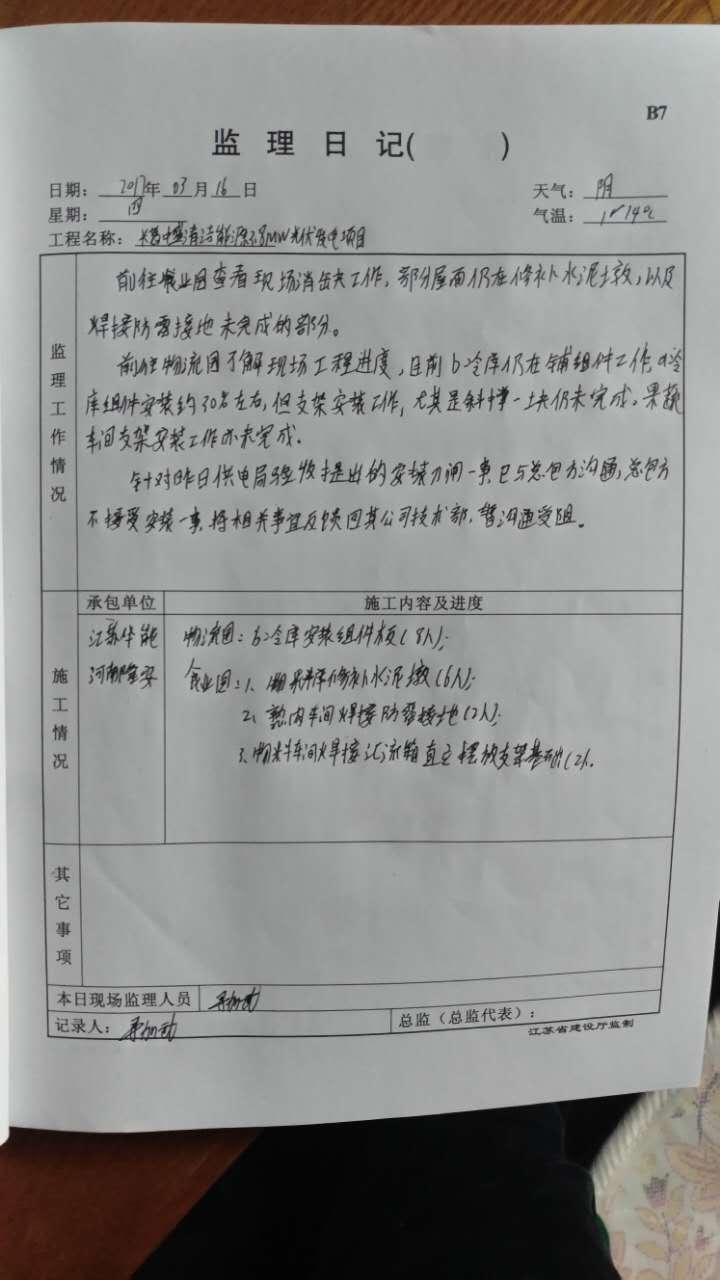 B7
监 理 日 记( )
日期: 2017年 03 月 16 日
天气: 阴
星期: 四
气温: 14℃
工程名称: 清洁能源 MW光伏发电项目
前往 业园查看现场消缺工作,部分屋面仍在修补水泥墩,以及
焊接防雷接地未完成的部分。
前往物流园了解现场工程进度,目前b冷库仍在铺组件工作,a冷
库组件安装约30%左右,但支架安装工作,尤其是斜撑一块仍未完成。果蔬
车间支架安装工作亦未完成。
针对昨日供电局验收提出的安装刀闸一事,已与总包方沟通,总包方
不接受安装一事,将相关事宜反馈回其公司技术部,暂沟通受阻。
监理工作情况
承包单位
施工内容及进度
江苏华能
物流园:b冷库安装组件板(8人);
河南隆安
食业园:1、 修补水泥墩(6人);
2、熟肉车间焊接防雷接地(2人);
3、物料车间焊接汇流箱直立摆放支架基础(2人
施工情况
其它事项
本日现场监理人员
记录人:
总监(总监代表):
江苏省建设厅监制